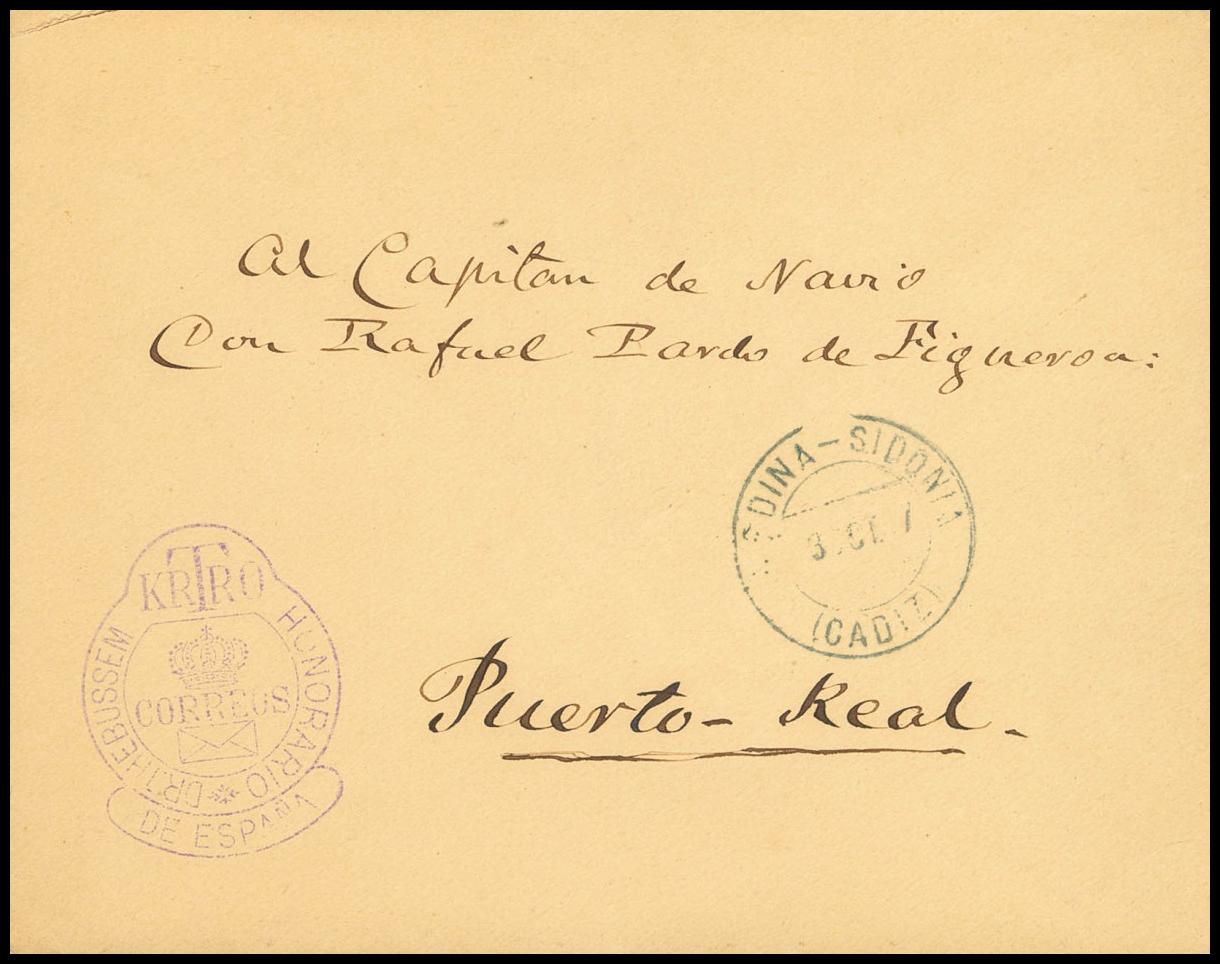 Al Capitan de Navio
Don Rafael Pardo de Figueroa:
DINA-SIDONIA
(CADIZ)
KRTRO
HONORARIO
DR THEBUSSEM
CORREOS
DE ESPAÑA
Puerto-Real.